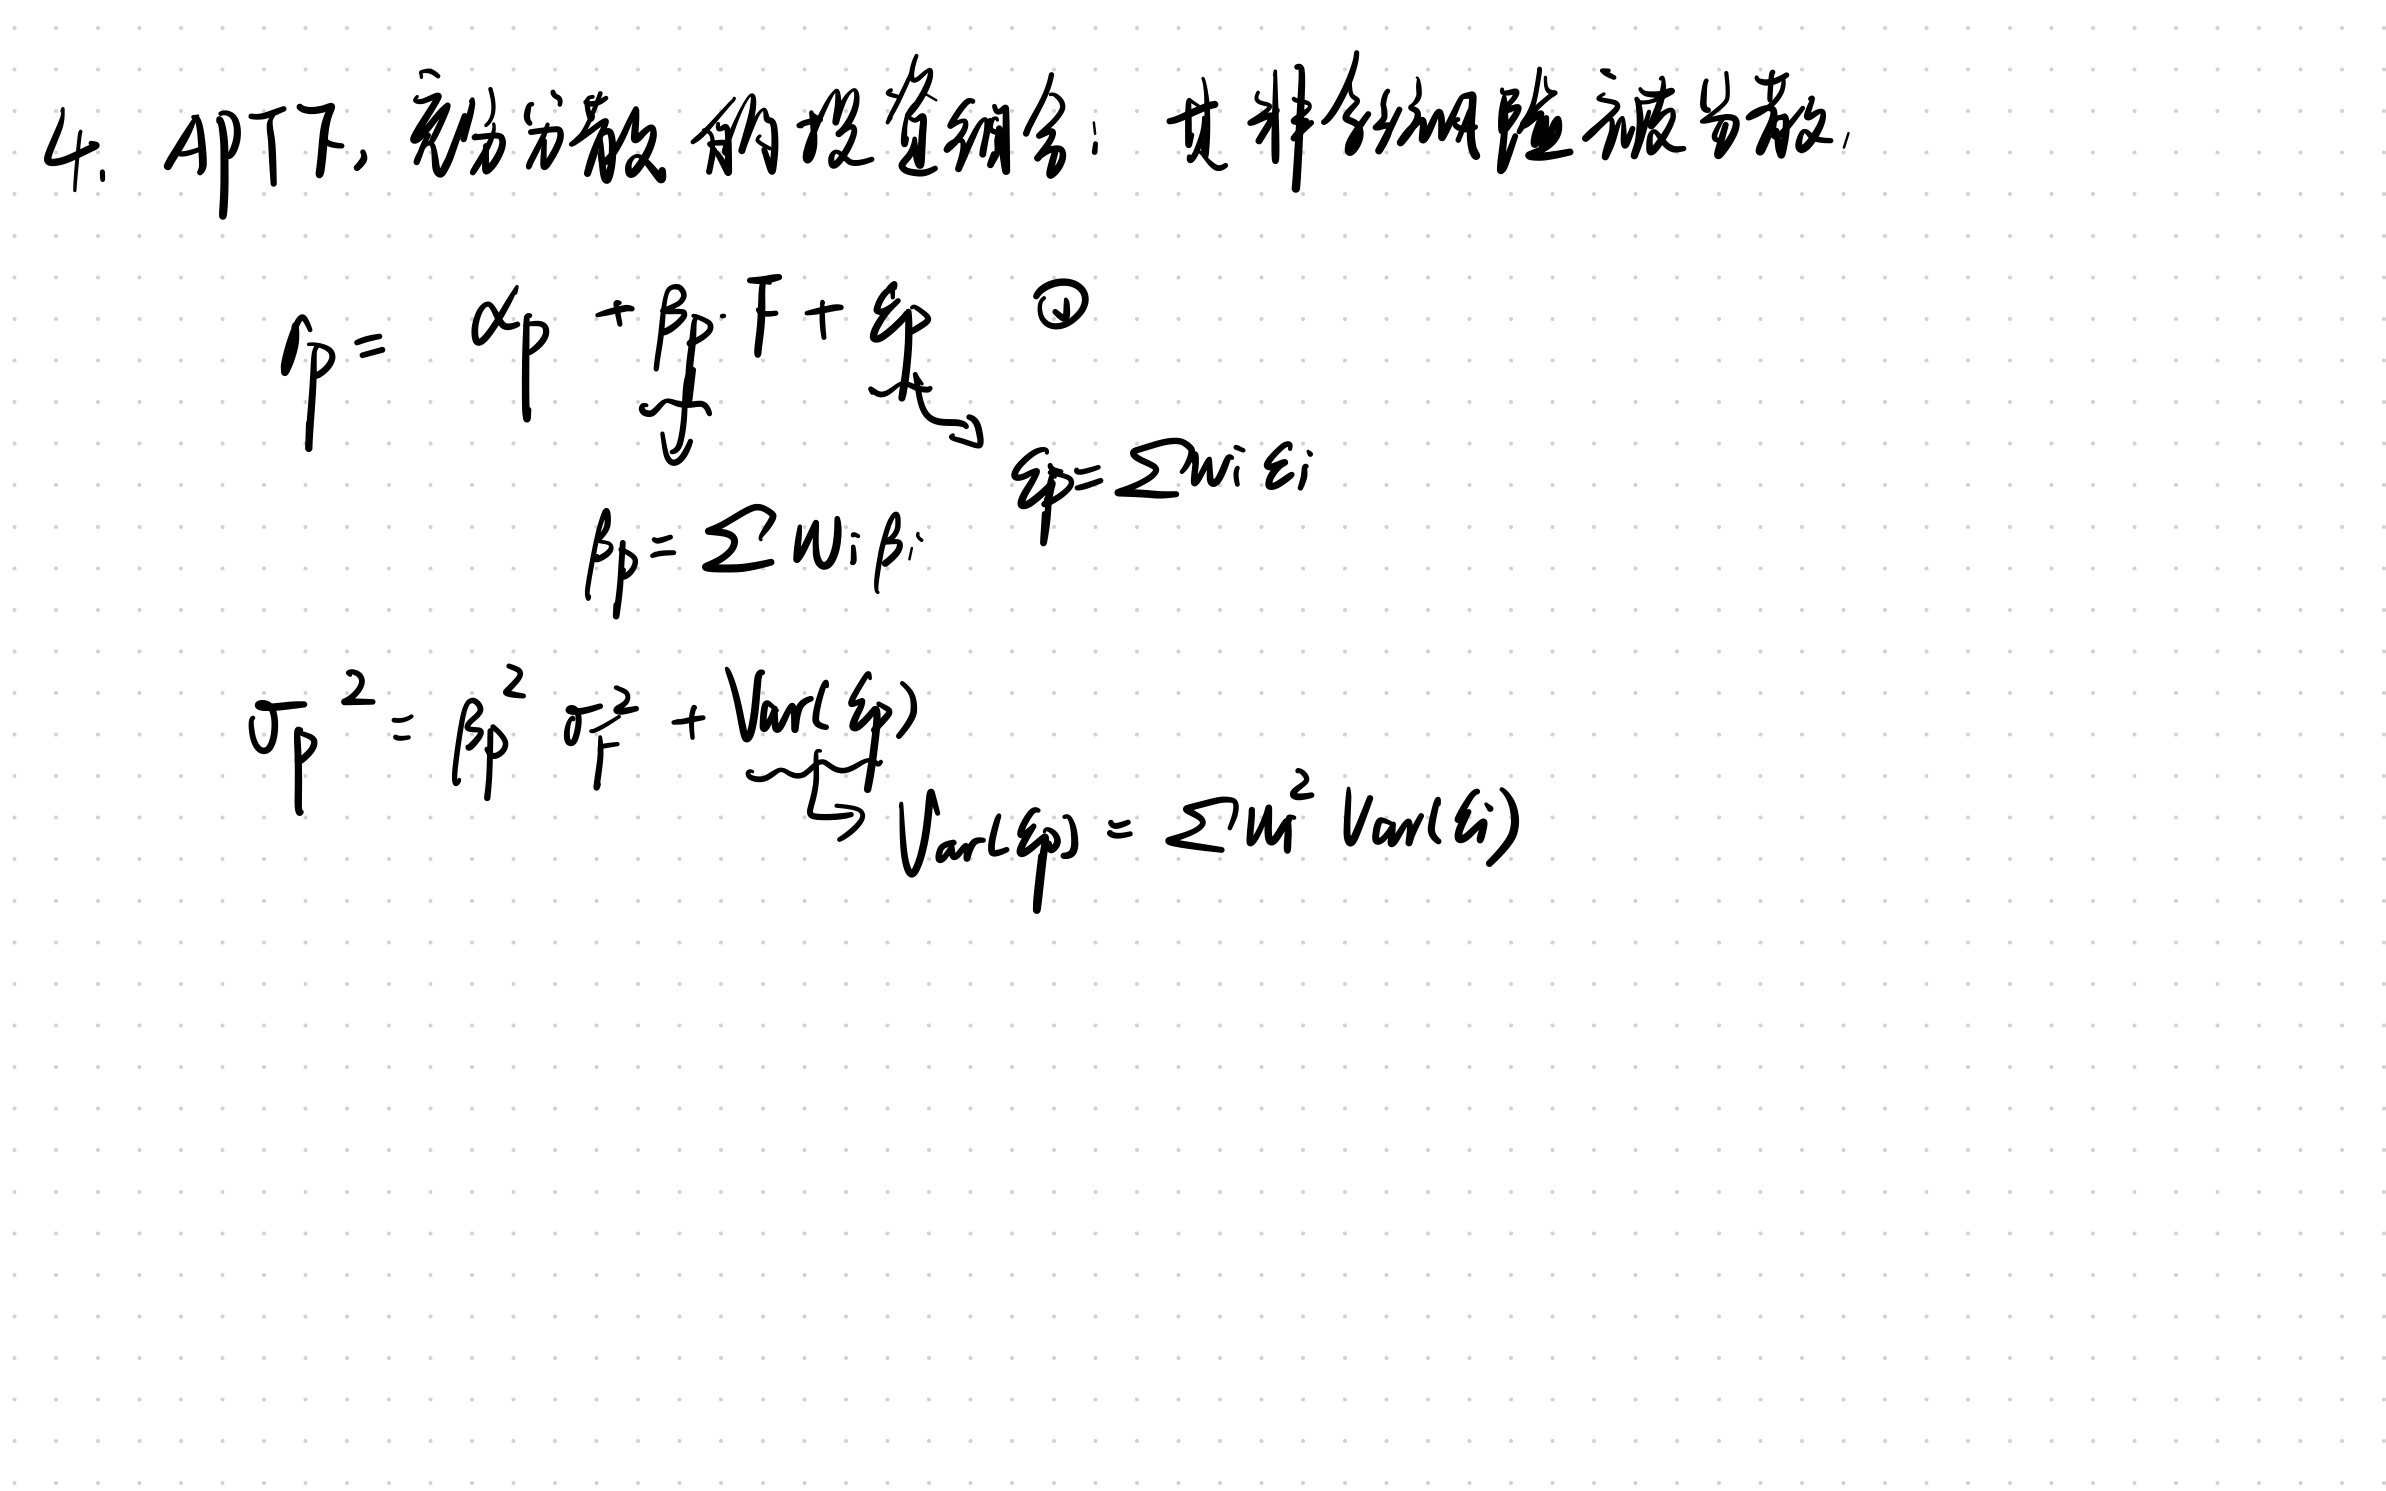 4. APT下: 充分分散化的投资组合: 其非系统风险可被忽略.
r_p = α_p + β_p · F + ε_p ①
ε_p = Σ w_i ε_i
β_p = Σ w_i β_i
σ_p² = β_p² σ_F² + Var(ε_p)
Var(ε_p) = Σ w_i² Var(ε_i)